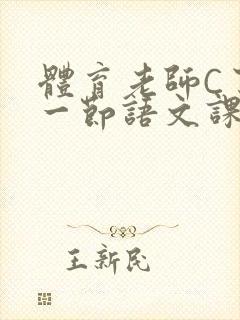 體育老師C
一節語文課
王新民